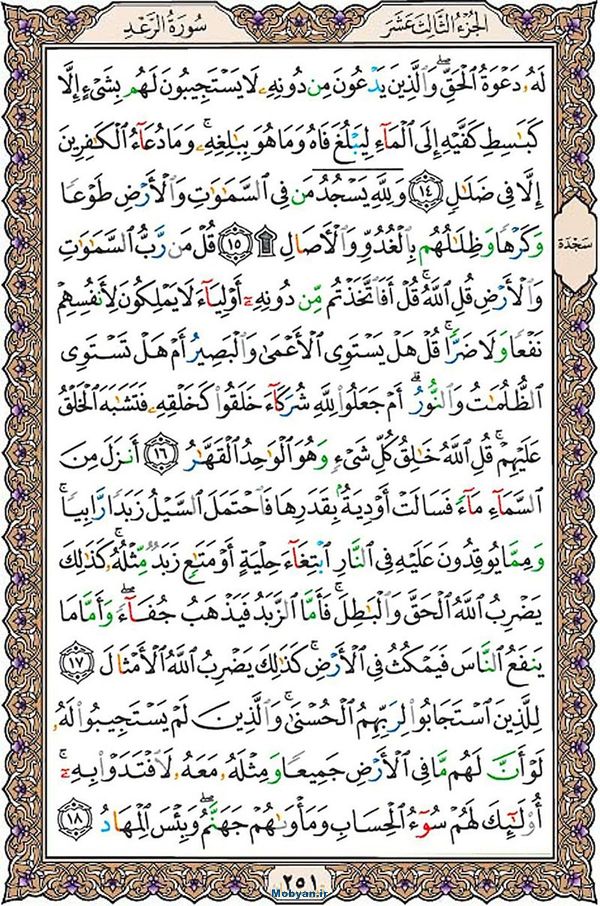 الجُزءُ الثّالِث عَشَر
سُورَةُ الرَّعد
لَهُۥ دَعۡوَةُ ٱلۡحَقِّۖ وَٱلَّذِينَ يَدۡعُونَ مِن دُونِهِۦ لَا يَسۡتَجِيبُونَ لَهُم بِشَيۡءٍ إِلَّا
كَبَٰسِطِ كَفَّيۡهِ إِلَى ٱلۡمَآءِ لِيَبۡلُغَ فَاهُ وَمَا هُوَ بِبَٰلِغِهِۦۚ وَمَا دُعَآءُ ٱلۡكَٰفِرِينَ
إِلَّا فِي ضَلَٰلٖ ١٤ وَلِلَّهِۤ يَسۡجُدُۤ مَن فِي ٱلسَّمَٰوَٰتِ وَٱلۡأَرۡضِ طَوۡعٗا
وَكَرۡهٗا وَظِلَٰلُهُم بِٱلۡغُدُوِّ وَٱلۡأٓصَالِ ١٥ ۩ قُلۡ مَن رَّبُّ ٱلسَّمَٰوَٰتِ
سَجدَة
وَٱلۡأَرۡضِ قُلِ ٱللَّهُۚ قُلۡ أَفَٱتَّخَذۡتُم مِّن دُونِهِۦٓ أَوۡلِيَآءَ لَا يَمۡلِكُونَ لِأَنفُسِهِمۡ
نَفۡعٗا وَلَا ضَرّٗاۚ قُلۡ هَلۡ يَسۡتَوِي ٱلۡأَعۡمَىٰ وَٱلۡبَصِيرُ أَمۡ هَلۡ تَسۡتَوِي
ٱلظُّلُمَٰتُ وَٱلنُّورُۗ أَمۡ جَعَلُواْ لِلَّهِ شُرَكَآءَ خَلَقُواْ كَخَلۡقِهِۦ فَتَشَٰبَهَ ٱلۡخَلۡقُ
عَلَيۡهِمۡۚ قُلِ ٱللَّهُ خَٰلِقُ كُلِّ شَيۡءٖ وَهُوَ ٱلۡوَٰحِدُ ٱلۡقَهَّٰرُ ١٦ أَنزَلَ مِنَ
ٱلسَّمَآءِ مَآءٗ فَسَالَتۡ أَوۡدِيَةُۢ بِقَدَرِهَا فَٱحۡتَمَلَ ٱلسَّيۡلُ زَبَدٗا رَّابِيٗاۚ
وَمِمَّا يُوقِدُونَ عَلَيۡهِ فِي ٱلنَّارِ ٱبۡتِغَآءَ حِلۡيَةٍ أَوۡ مَتَٰعٖ زَبَدٞ مِّثۡلُهُۥۚ كَذَٰلِكَ
يَضۡرِبُ ٱللَّهُ ٱلۡحَقَّ وَٱلۡبَٰطِلَۚ فَأَمَّا ٱلزَّبَدُ فَيَذۡهَبُ جُفَآءٗۖ وَأَمَّا مَا
يَنفَعُ ٱلنَّاسَ فَيَمۡكُثُ فِي ٱلۡأَرۡضِۚ كَذَٰلِكَ يَضۡرِبُ ٱللَّهُ ٱلۡأَمۡثَالَ ١٧
لِلَّذِينَ ٱسۡتَجَابُواْ لِرَبِّهِمُ ٱلۡحُسۡنَىٰۚ وَٱلَّذِينَ لَمۡ يَسۡتَجِيبُواْ لَهُۥ
لَوۡ أَنَّ لَهُم مَّا فِي ٱلۡأَرۡضِ جَمِيعٗا وَمِثۡلَهُۥ مَعَهُۥ لَٱفۡتَدَوۡاْ بِهِۦٓۚ
أُوْلَٰٓئِكَ لَهُمۡ سُوٓءُ ٱلۡحِسَابِ وَمَأۡوَىٰهُمۡ جَهَنَّمُۖ وَبِئۡسَ ٱلۡمِهَادُ ١٨
٢٥١
Mobyan.ir